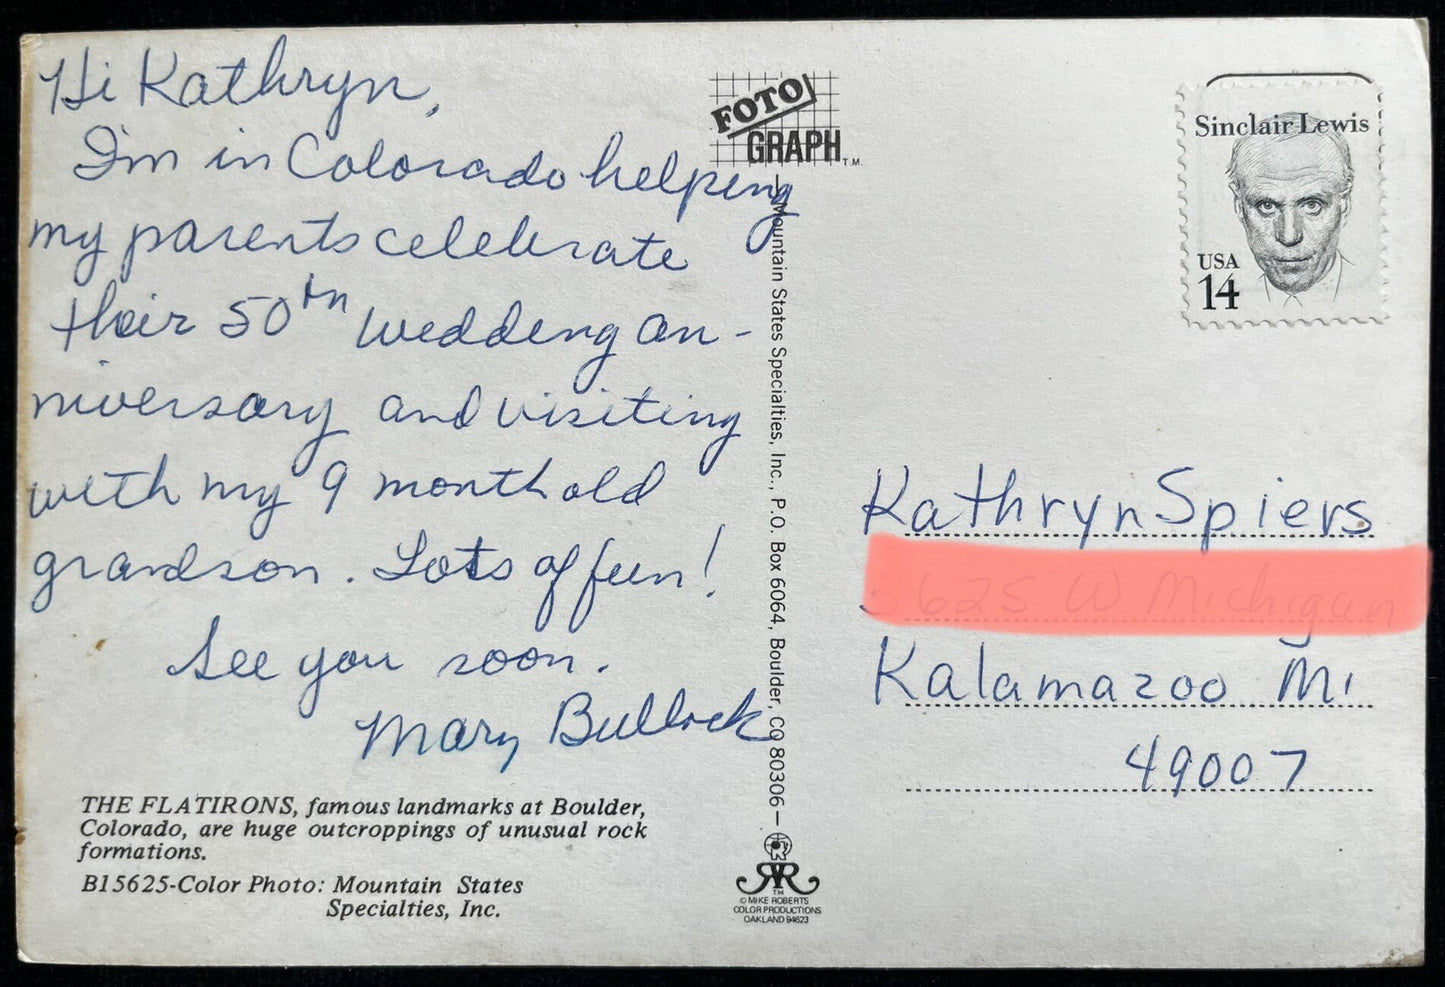 Hi Kathryn,
I'm in Colorado helping
my parents celebrate
their 50th wedding an-
niversary and visiting
with my 9 month old
grandson. Lots of fun!
See you soon.
Mary Bullock
THE FLATIRONS, famous landmarks at Boulder,
Colorado, are huge outcroppings of unusual rock
formations.
B15625-Color Photo: Mountain States
Specialties, Inc.
FOTO
GRAPH T.M.
— Mountain States Specialties, Inc., P.O. Box 6064, Boulder, CO 80306 —
TM
© MIKE ROBERTS
COLOR PRODUCTIONS
OAKLAND 94623
Sinclair Lewis
USA
14
Kathryn Spiers
Kalamazoo Mi
49007